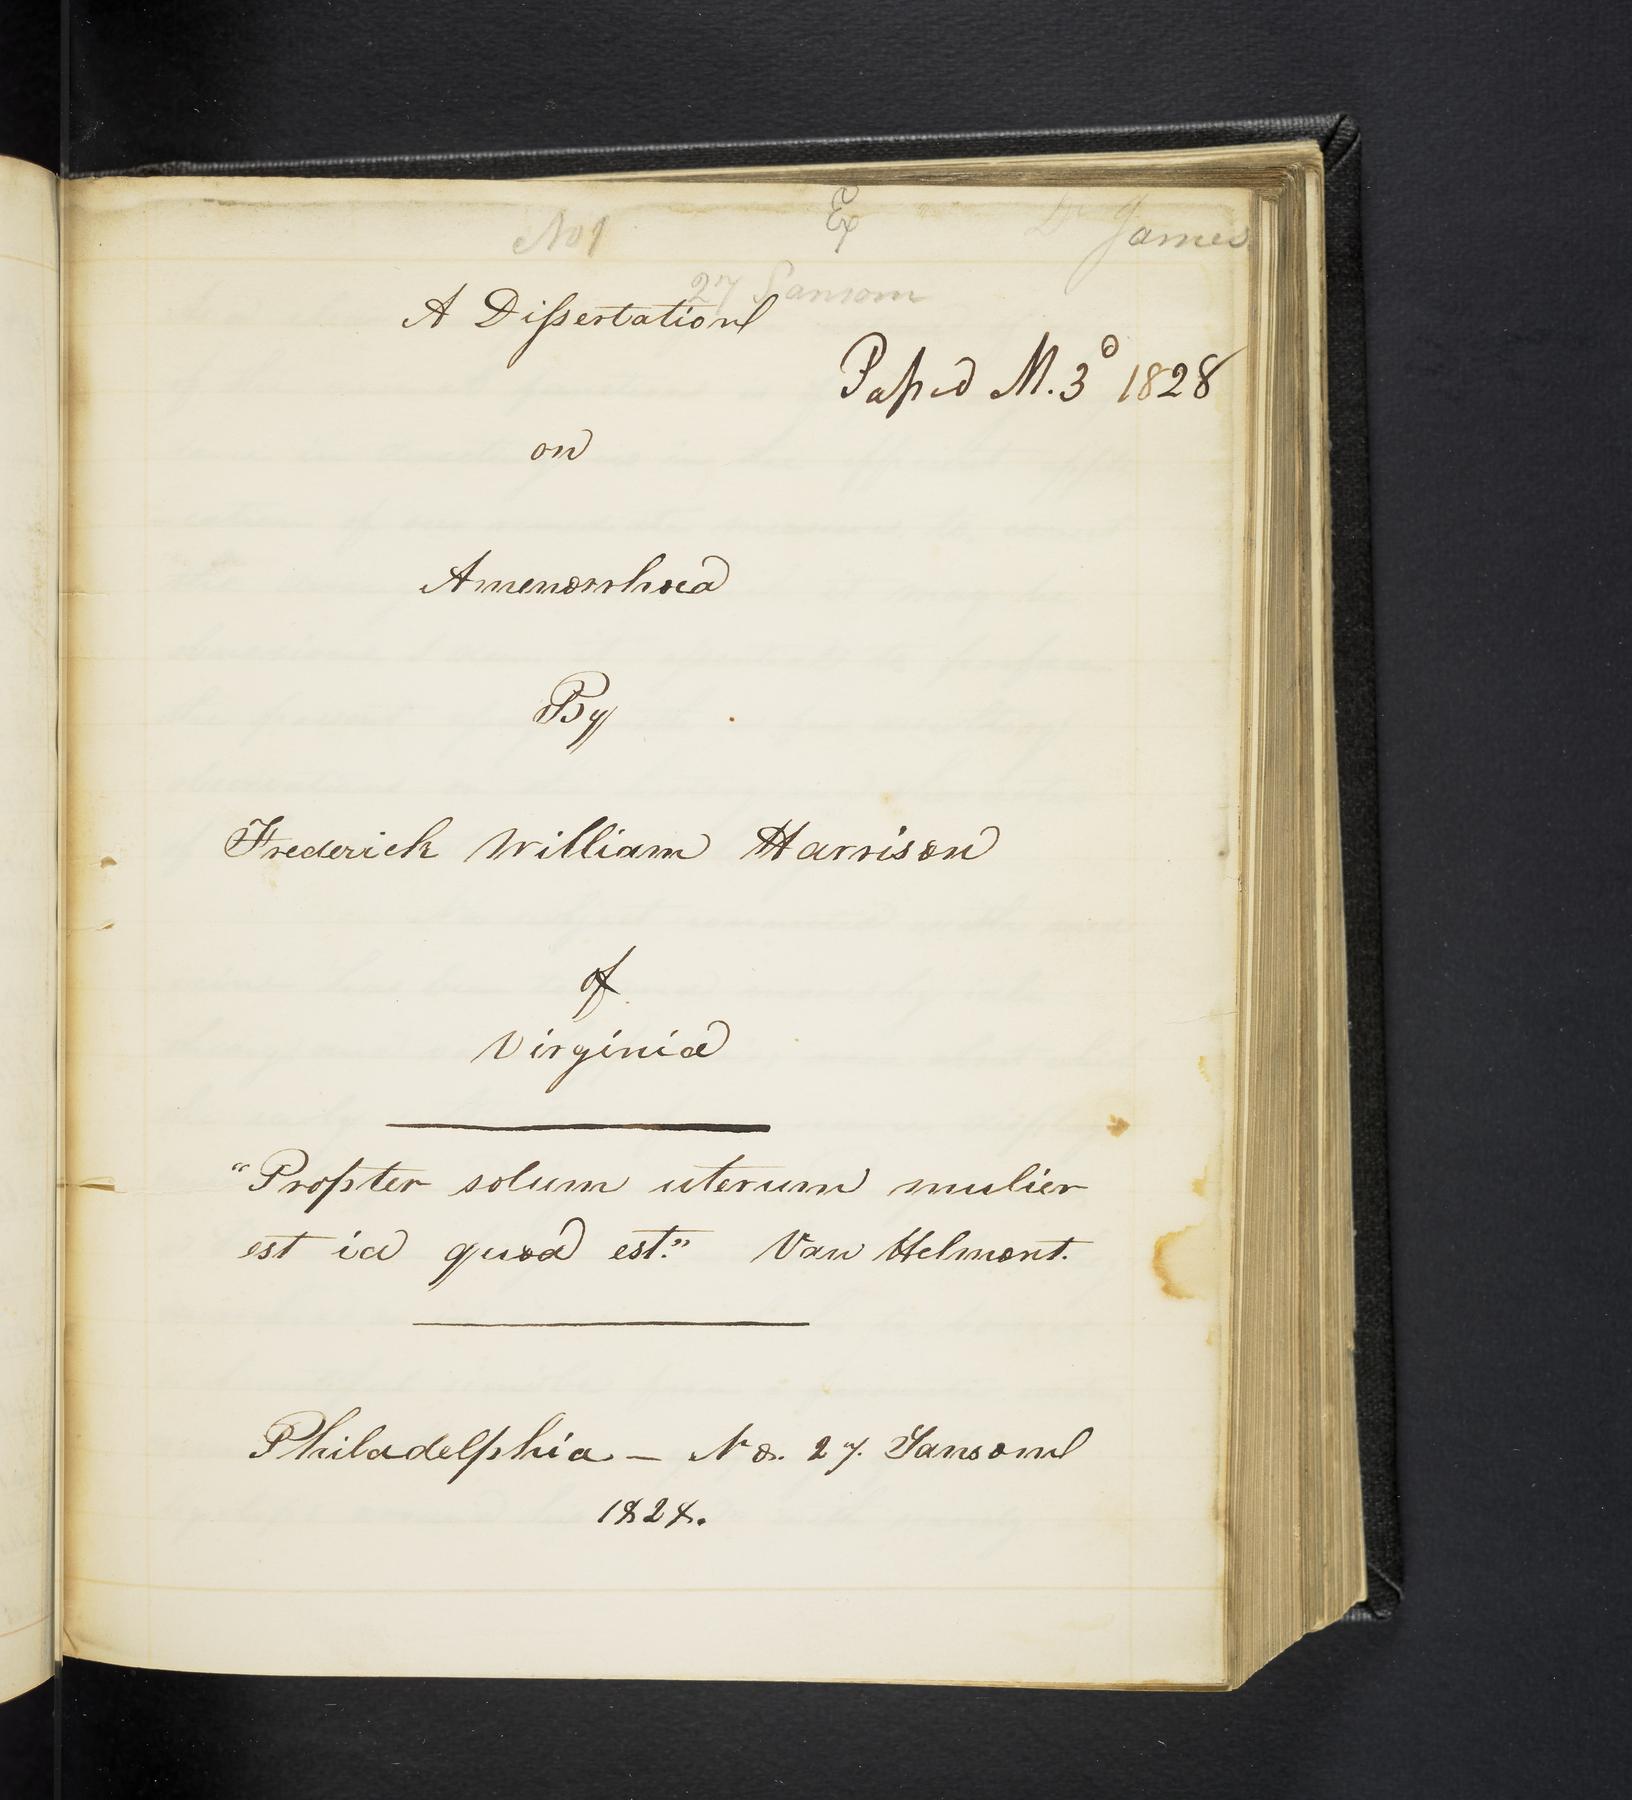 No 1 Ex Dr James
27 Sansom
A Dissertation
Passed M. 3° 1828
on
Amenorrhoea
By
Frederick William Harrison
of
Virginia
"Propter solum uterum mulier
est id quod est." Van Helmont.
Philadelphia – No. 27. Sansom
1828.